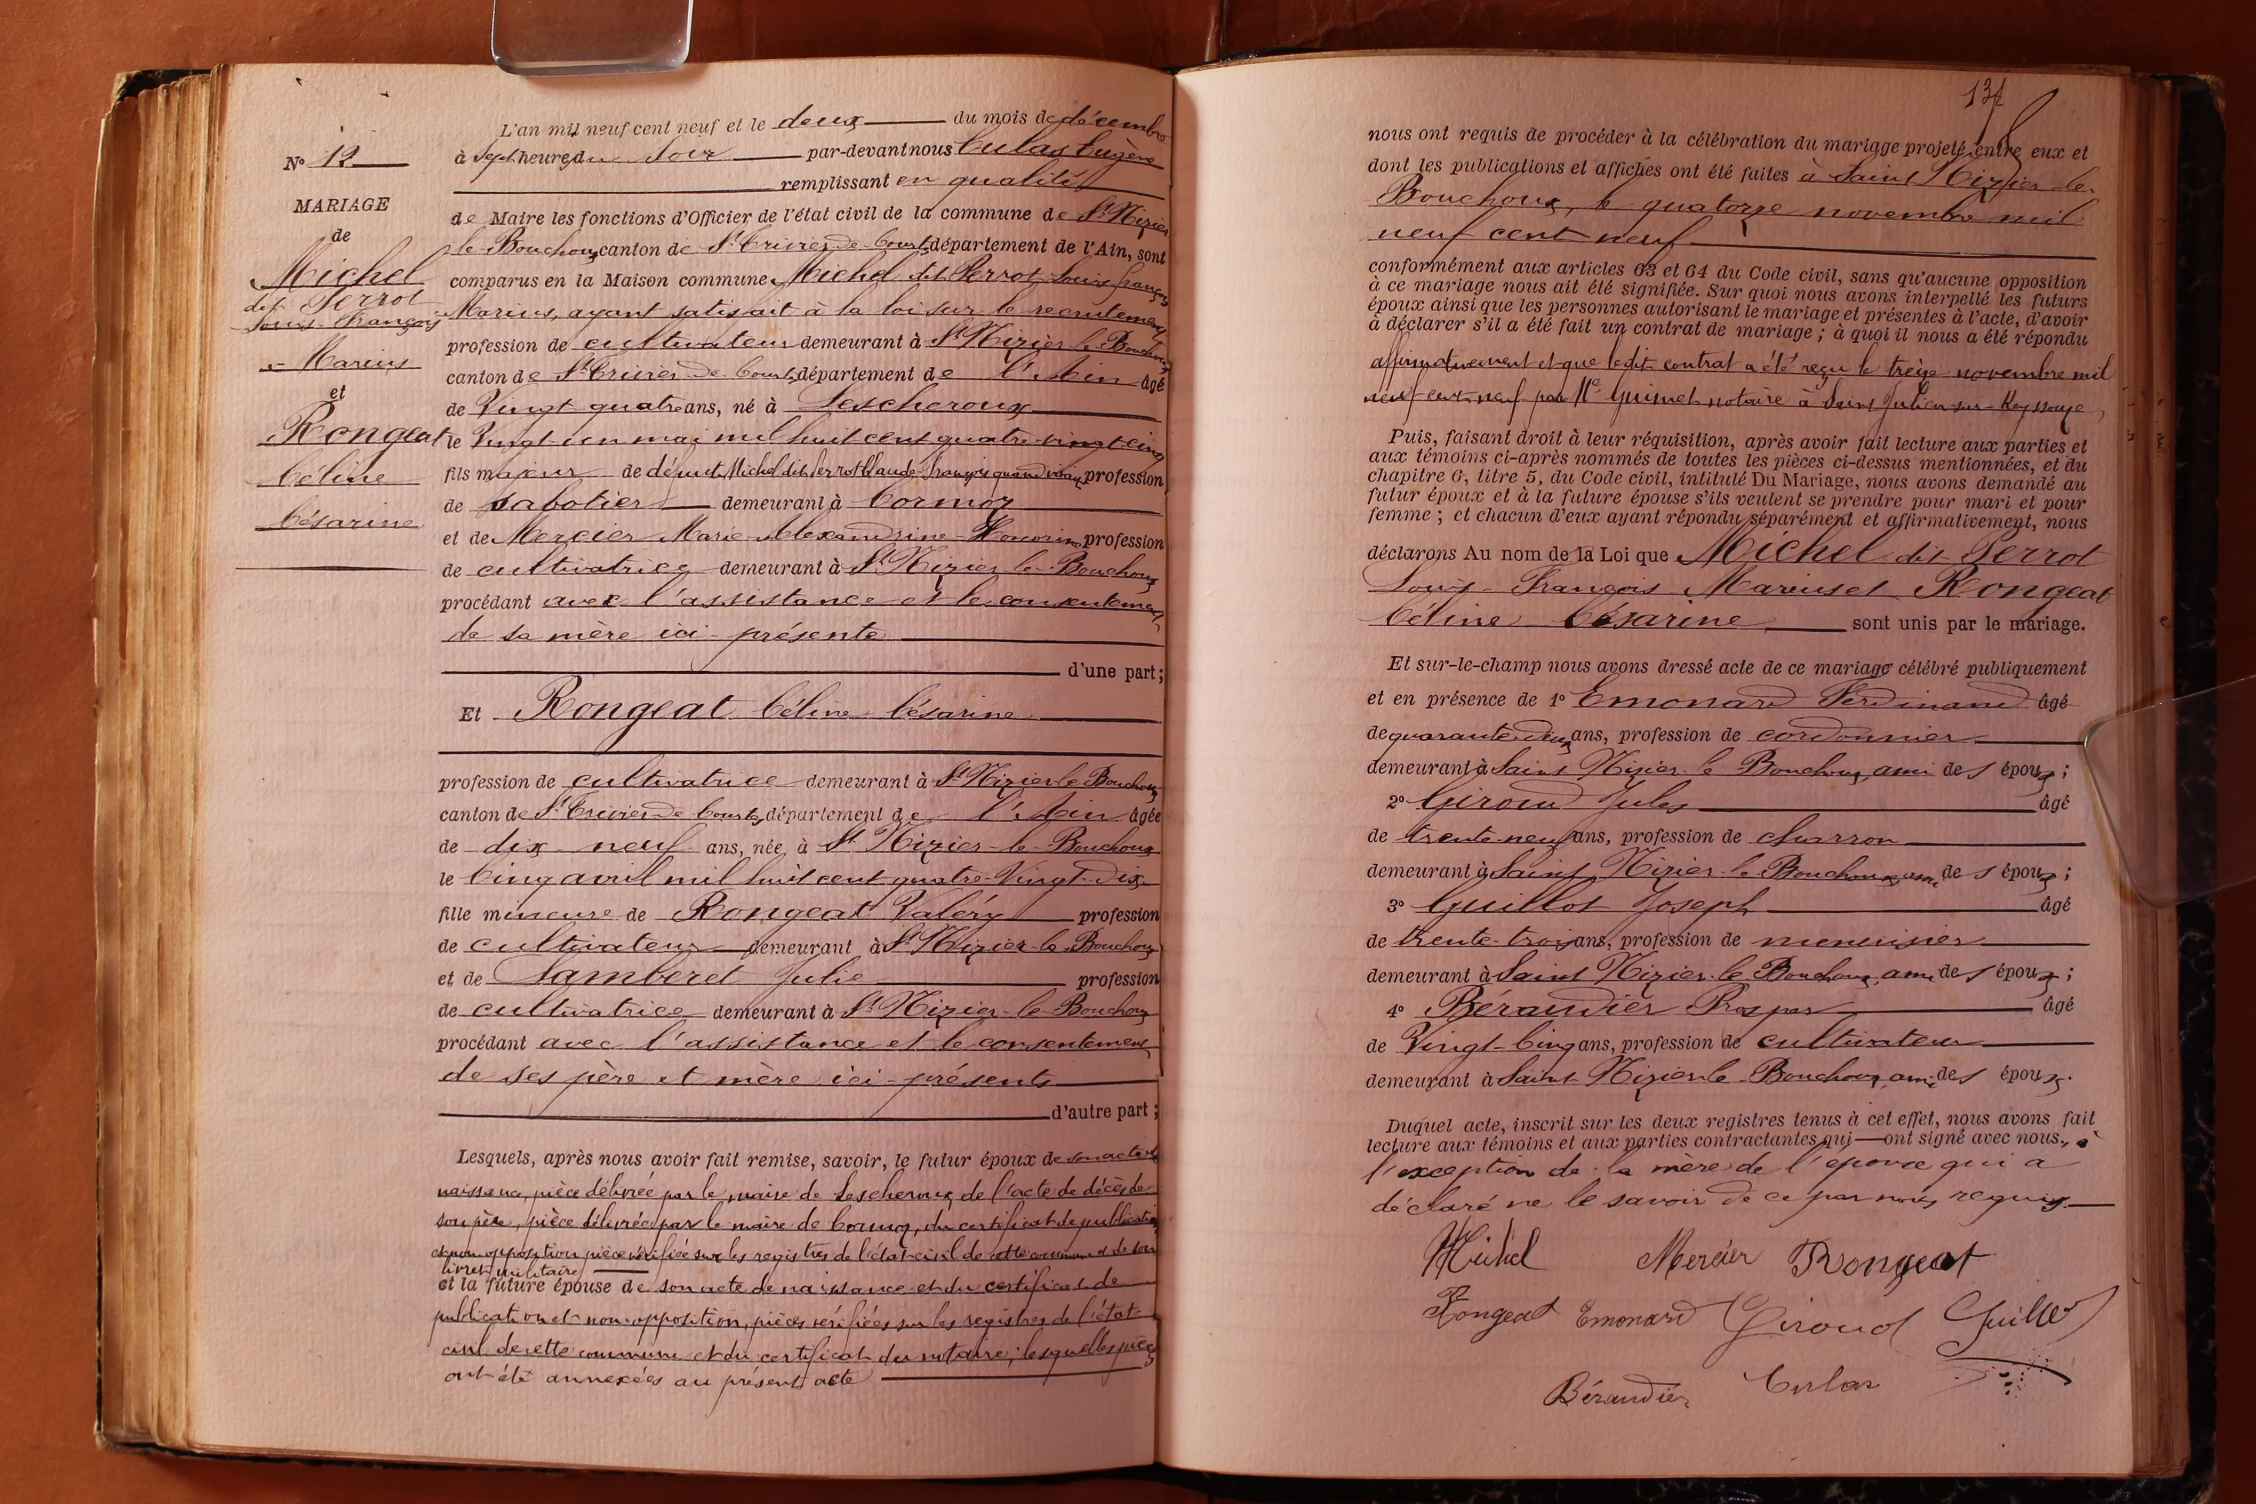 L'an mil neuf cent neuf et le deux du mois de décembre
à sept heures du soir par-devant nous Culas Eugène
remplissant en qualité
de Maire les fonctions d'Officier de l'état civil de la commune de St Nizier
le Bouchoux canton de St Trivier de Courtes département de l'Ain, sont
comparus en la Maison commune Michel dit Perrot Louis François
Marius, ayant satisfait à la loi sur le recrutement
profession de cultivateur demeurant à St Nizier le Bouchoux
canton de St Trivier de Courtes département de l'Ain âgé
de Vingt quatre ans, né à Lescheroux
le Vingt-un mai mil huit cent quatre-vingt-cinq
fils majeur de défunt Michel dit Perrot Claude François quand vivait profession
de sabotier demeurant à Cormoz
et de Mercier Marie Alexandrine Honorine profession
de cultivatrice demeurant à St Nizier le Bouchoux
procédant avec l'assistance et le consentement
de sa mère ici-présente
d'une part;
Et Rongeat Céline Césarine
profession de cultivatrice demeurant à St Nizier le Bouchoux
canton de St Trivier de Courtes département de l'Ain âgée
de dix neuf ans, née à St Nizier-le-Bouchoux
le Cinq avril mil huit cent quatre-Vingt-dix
fille mineure de Rongeat Valéry profession
de cultivateur demeurant à St Nizier-le-Bouchoux
et de Lamberet Julie profession
de cultivatrice demeurant à St Nizier-le-Bouchoux
procédant avec l'assistance et le consentement
de ses père et mère ici-présents
d'autre part;
Lesquels, après nous avoir fait remise, savoir, le futur époux de son acte de
naissance, pièce délivrée par le maire de Lescheroux, de l'acte de décès de
son père, pièce délivrée par le maire de Cormoz, du certificat de publication
et non opposition pièce vérifiée sur les registres de l'état-civil de cette commune et de son
livret militaire
et la future épouse de son acte de naissance et du certificat de
publication et non-opposition, pièces vérifiées sur les registres de l'état-
civil de cette commune et du certificat du notaire; lesquelles pièces
ont été annexées au présent acte
No 12
MARIAGE
de
Michel
dit Perrot
Louis François
Marius
et
Rongeat
Céline
Césarine
137
nous ont requis de procéder à la célébration du mariage projeté entre eux et
dont les publications et affiches ont été faites à Saint Nizier-le-
Bouchoux, le quatorze novembre mil
neuf cent neuf
conformément aux articles 63 et 64 du Code civil, sans qu'aucune opposition
à ce mariage nous ait été signifiée. Sur quoi nous avons interpellé les futurs
époux ainsi que les personnes autorisant le mariage et présentes à l'acte, d'avoir
à déclarer s'il a été fait un contrat de mariage; à quoi il nous a été répondu
affirmativement et que ledit contrat a été reçu le treize novembre mil
neuf cent neuf par Me Guimet notaire à Saint Julien-sur-Reyssouze,
Puis, faisant droit à leur réquisition, après avoir fait lecture aux parties et
aux témoins ci-après nommés de toutes les pièces ci-dessus mentionnées, et du
chapitre 6, titre 5, du Code civil, intitulé Du Mariage, nous avons demandé au
futur époux et à la future épouse s'ils veulent se prendre pour mari et pour
femme; et chacun d'eux ayant répondu séparément et affirmativement, nous
déclarons Au nom de la Loi que Michel dit Perrot
Louis-François Marius et Rongeat
Céline Césarine sont unis par le mariage.
Et sur-le-champ nous avons dressé acte de ce mariage célébré publiquement
et en présence de 1o Emonard Ferdinand âgé
de quarante deux ans, profession de cordonnier
demeurant à Saint Nizier le Bouchoux, ami des époux;
2o Giroud Jules âgé
de trente-neuf ans, profession de charron
demeurant à Saint Nizier le Bouchoux, ami des époux;
3o Guillot Joseph âgé
de trente-trois ans, profession de menuisier
demeurant à Saint Nizier-le-Bouchoux, ami des époux;
4o Béraudier Prosper âgé
de Vingt-Cinq ans, profession de cultivateur
demeurant à Saint-Nizier le Bouchoux, ami des époux.
Duquel acte, inscrit sur les deux registres tenus à cet effet, nous avons fait
lecture aux témoins et aux parties contractantes qui ont signé avec nous, à
l'exception de la mère de l'épouse qui a
déclaré ne le savoir de ce par nous requis.
Michel Mercier Rongeat
Rongeat Emonard Giroud Guillot
Béraudier Culas